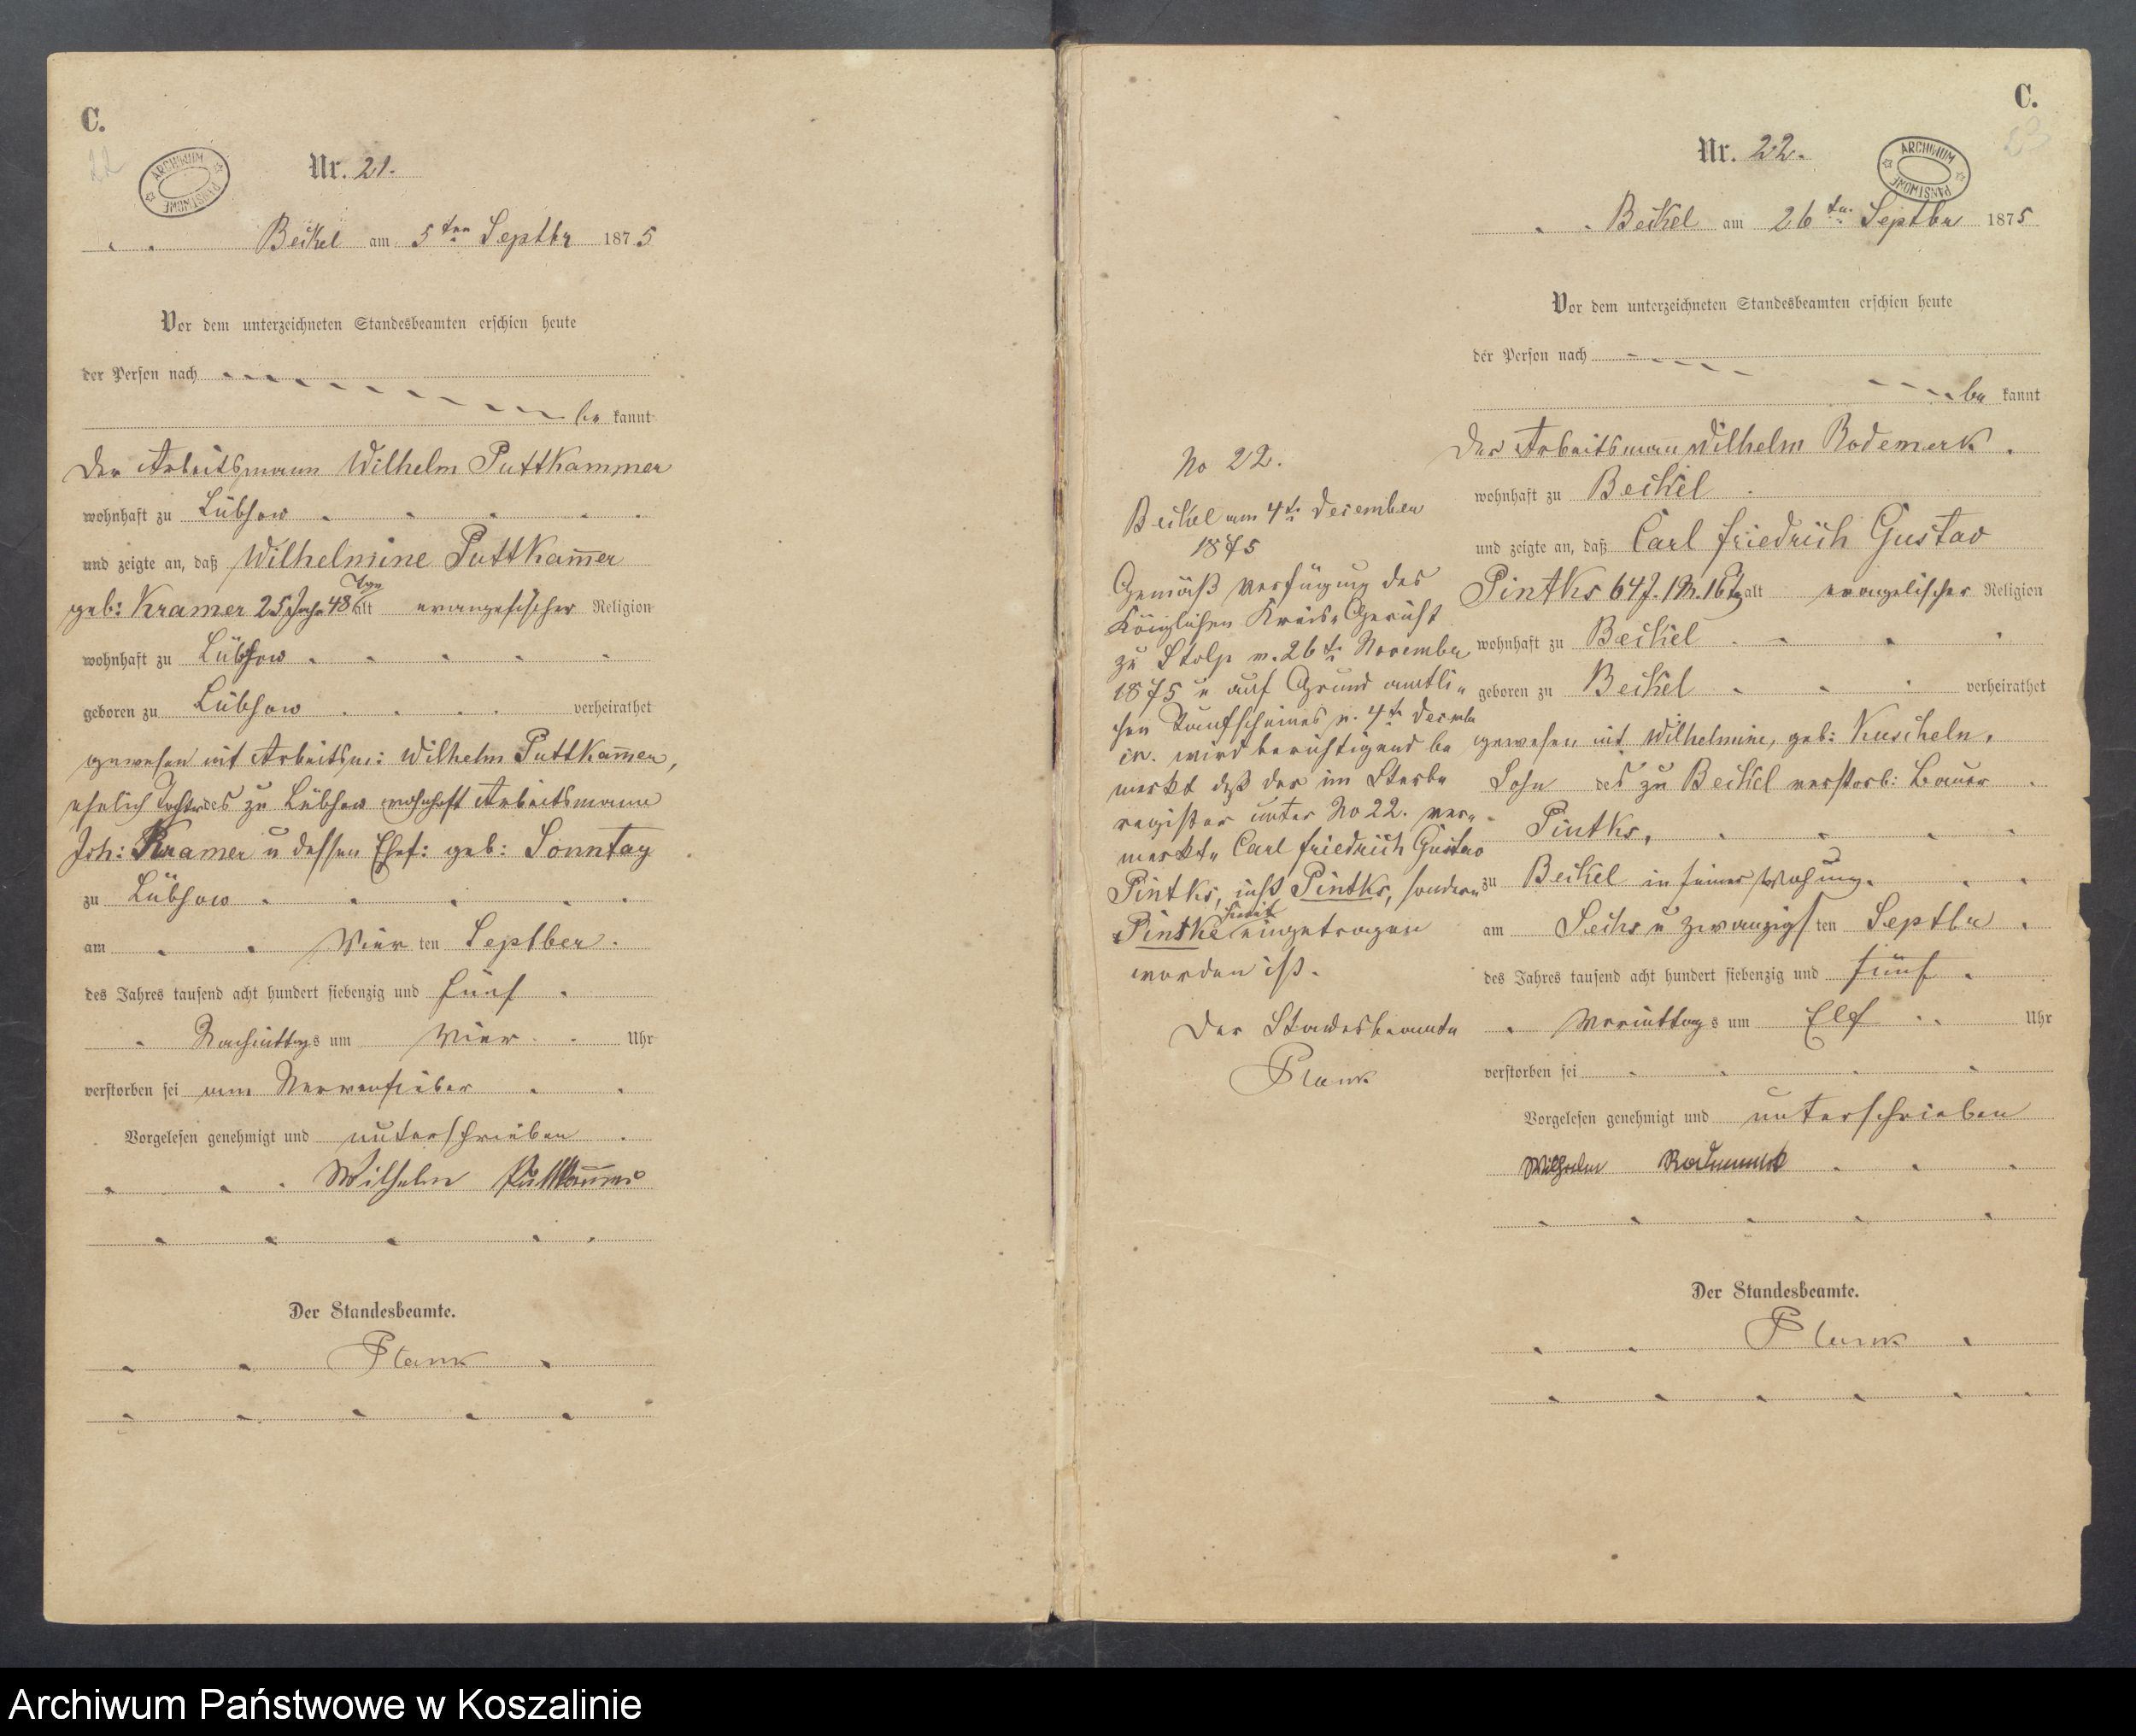 C.
22
ARCHIWUM PAŃSTWOWE
Nr. 21.
Beikel am 5ten Septbr 1875
Vor dem unterzeichneten Standesbeamten erschien heute
der Person nach
be kannt
Der Arbeitsmann Wilhelm Puttkammer
wohnhaft zu Lübsow
und zeigte an, daß Wilhelmine Puttkam̅er
geb: Kramer 25 Jahr 48 Tge alt evangelischer Religion
wohnhaft zu Lübsow
geboren zu Lübsow verheirathet
gewesen mit Arbeitsm: Wilhelm Puttkam̅er,
ehelich Tochter des zu Lübsow wohnhaft Arbeitsmann
Joh: Kramer u dessen Ehef: geb: Sonntag
zu Lübsow
am Vier ten Septber.
des Jahres tausend acht hundert siebenzig und fünf
Nachmittags um Vier Uhr
verstorben sei am Nervenfieber
Vorgelesen genehmigt und unterschrieben
Wilhelm Puttkam̅er
Der Standesbeamte.
Plank
C.
23
ARCHIWUM PAŃSTWOWE
Nr. 22.
Beikel am 26tn. Septbr 1875
Vor dem unterzeichneten Standesbeamten erschien heute
der Person nach
be kannt
Der Arbeitsman Wilhelm Rodemerk.
wohnhaft zu Beikel
und zeigte an, daß Carl Friedrich Gustav
Pintks 64 J. 1 M. 16 Tg alt evangelischer Religion
wohnhaft zu Beikel
geboren zu Beikel verheirathet
gewesen mit Wilhelmine, geb: Kuscheln,
Sohn des zu Beikel verstorb: Bauer
Pintks,
zu Beikel in seiner Wohnung.
am Sechs u zwanzigs ten Septbr
des Jahres tausend acht hundert siebenzig und fünf
Vormittags um Elf Uhr
verstorben sei
Vorgelesen genehmigt und unterschrieben
Wilhelm Rodemerk
Der Standesbeamte.
Plank
No 22.
Beikel am 4t. Dezember
1875
Gemäß Verfügung des
Königlichen Kreis-Gericht
zu Stolp v. 26t. November
1875 u auf Grund amtli-
chen Taufscheines v. 4t. Decmbr
cr. wird berichtigend be
merkt daß der im Sterbe
register unter No 22. ver-
merkte Carl Friedrich Gustav
Pintks, nicht Pintks, sondern
Pintke eingetragen
worden ist.
Der Standesbeamte
Plank
Archiwum Państwowe w Koszalinie